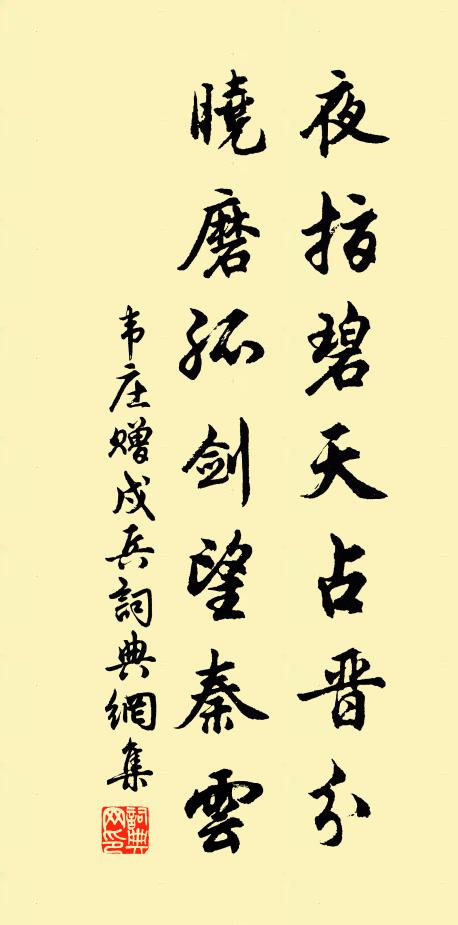 夜指碧天占晋分
曉磨孤剑望秦雲
韦庄赠戍兵詞典網集
詞典网印